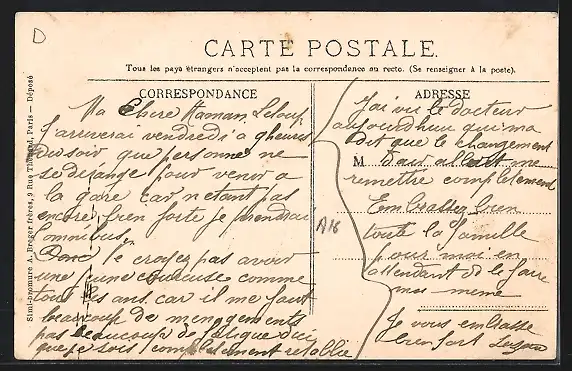 D
CARTE POSTALE.
Tous les pays étrangers n'acceptent pas la correspondance au recto. (Se renseigner à la poste).
CORRESPONDANCE
Ma Chere Maman Leloup
J'arriverai vendredi a 9 heures
du soir que personne ne
se derange pour venir a
la gare car n'etant pas
encore bien forte je prendrai
l'omnibus
Donc ne croyez pas avoir
une jeune coureuse comme
tout les ans car il me faut
beaucoup de menagements
pas beaucoup de fatigue d'ici
que je sois completement retablie
ADRESSE
J'ai vu le docteur
aujourdhui qui m'a
dit que le changement
M
d'air allait me
remettre completement
Embrassez bien
toute la famille
pour moi en
attendant de le faire
moi meme
Je vous embrasse
bien fort
A16
Simili-bromure A. Breger frères, 9 Rue Thénard, Paris — Déposé